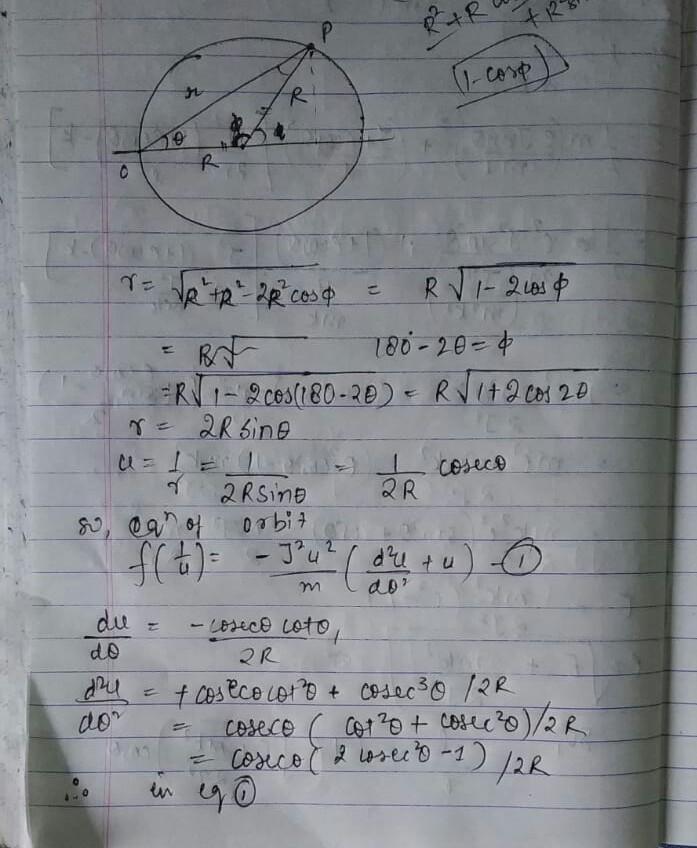 R² + R
+ R²
(1-cosφ)
P
r
R
θ
R
O
r = √R²+R²-2R²cosφ = R√1-2cosφ
= R√ 180-2θ = φ
= R√1-2cos(180-2θ) = R√1+2cos2θ
r = 2Rsinθ
u = 1/r = 1/2Rsinθ = 1/2R cosecθ
so, eqⁿ of orbit
f(1/u) = -J²u²/m (d²u/dθ² + u) -①
du/dθ = -cosecθ cotθ/2R,
d²u/dθ² = +cosecθcot²θ + cosec³θ /2R
= cosecθ ( cot²θ + cosec²θ)/2R
= cosecθ( 2 cosec²θ -1) /2R
∴ in eq ①